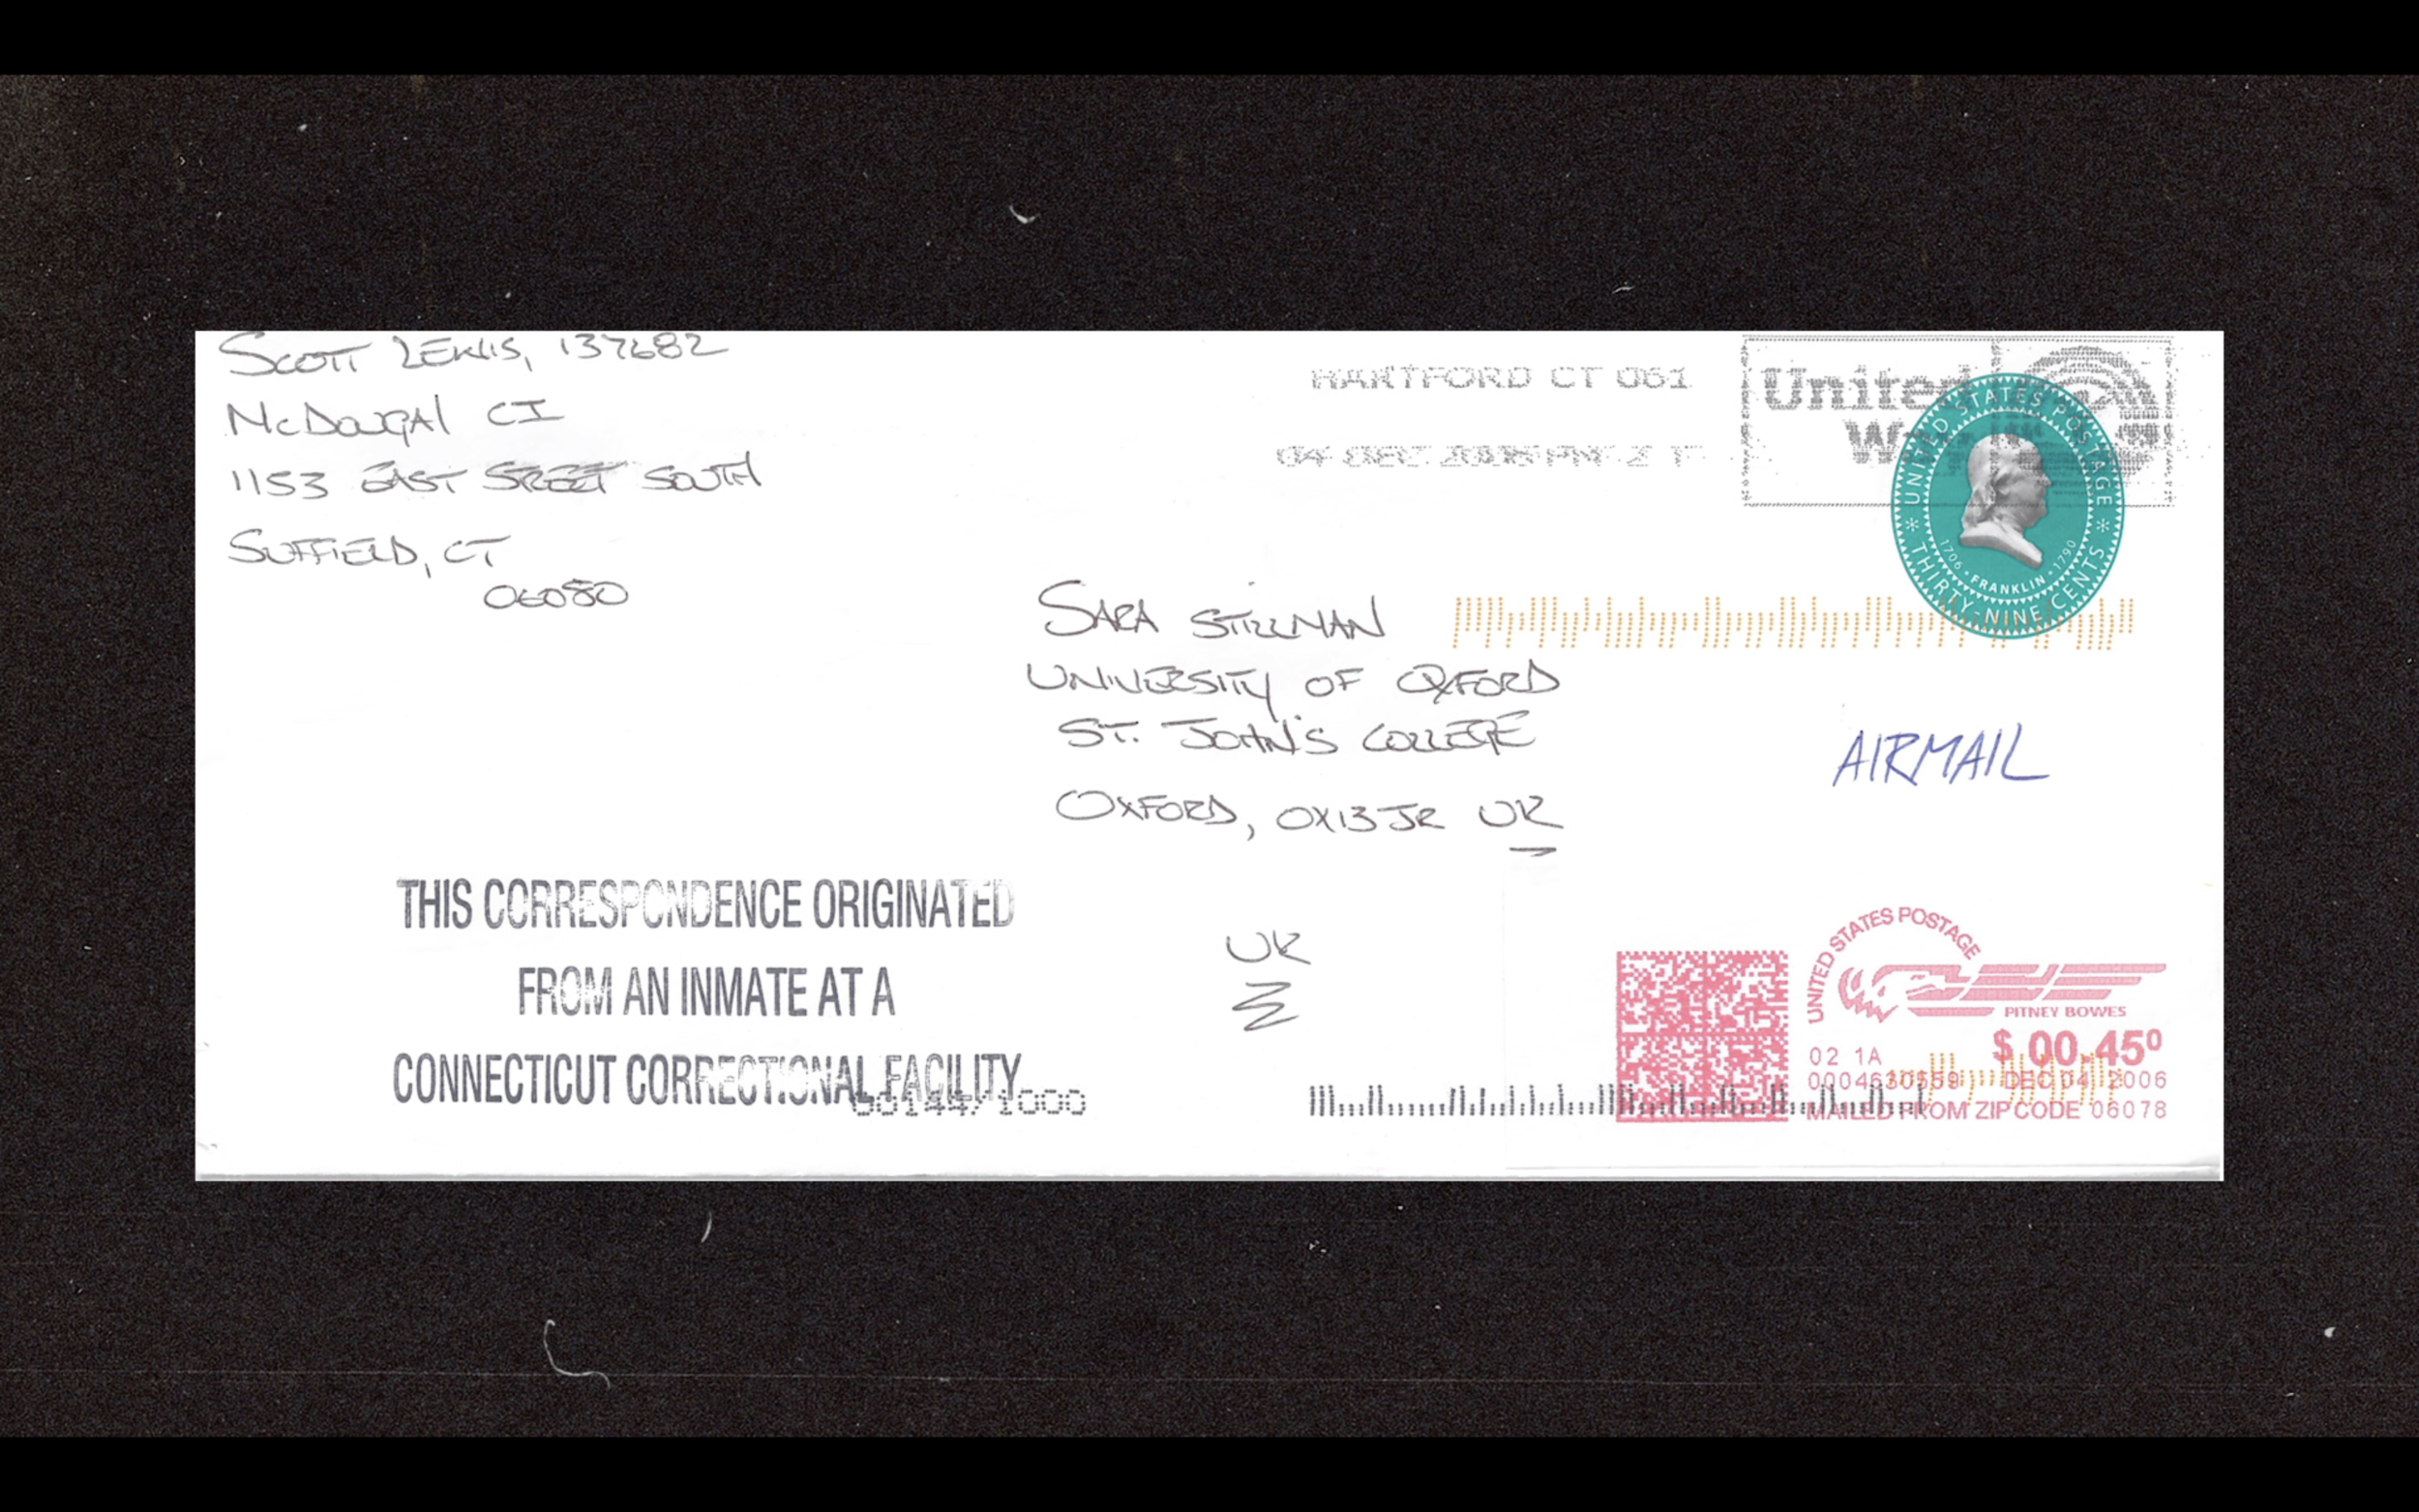 SCOTT LEWIS, 137682
McDougal CI
1153 EAST STREET SOUTH
SUFFIELD, CT
06080
HARTFORD CT 061
04 DEC 2006 PM 2 T
United
UNITED STATES POSTAGE
1706 · FRANKLIN · 1790
THIRTY-NINE CENTS
SARA STILLMAN
UNIVERSITY OF OXFORD
ST. JOHN'S COLLEGE
OXFORD, OX13JR UK
AIRMAIL
THIS CORRESPONDENCE ORIGINATED
FROM AN INMATE AT A
CONNECTICUT CORRECTIONAL FACILITY
UK
UNITED STATES POSTAGE
PITNEY BOWES
02 1A
$ 00.45⁰
0004630559 DEC 04 2006
MAILED FROM ZIP CODE 06078